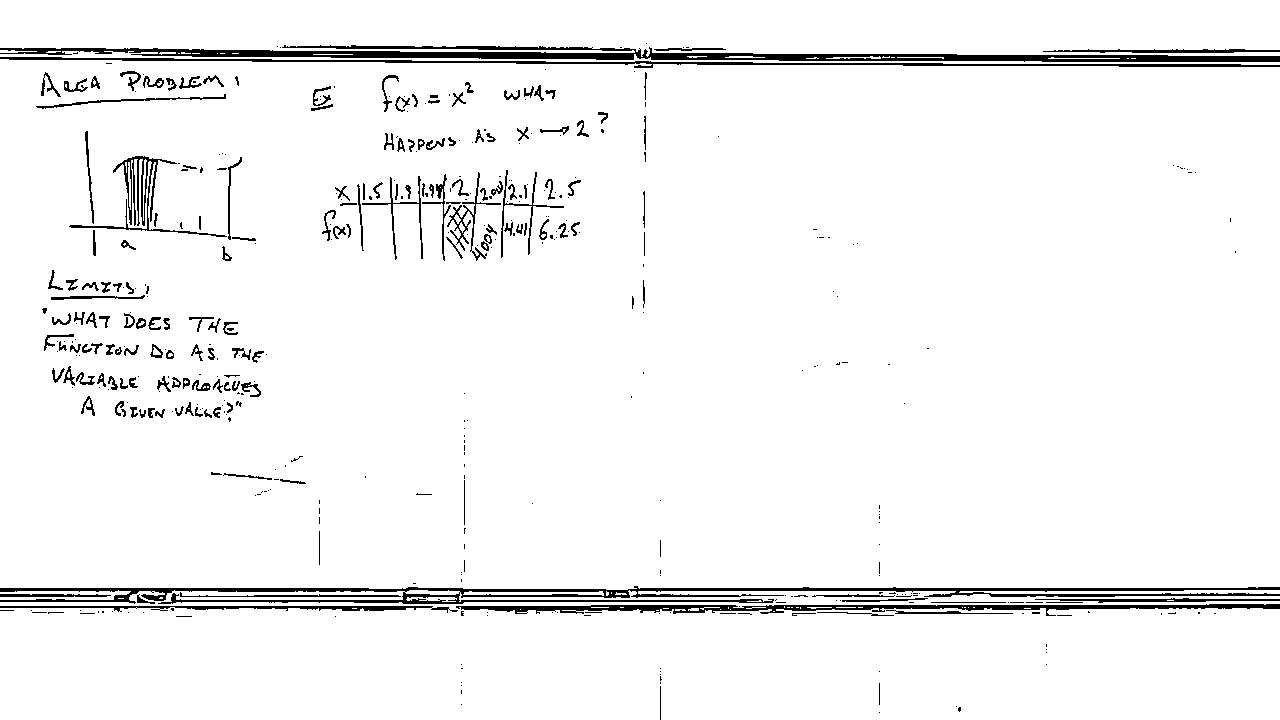 AREA PROBLEM:
a
b
LIMITS:
"WHAT DOES THE
FUNCTION DO AS THE
VARIABLE APPROACHES
A GIVEN VALUE?"
EX f(x) = x² WHAT
HAPPENS AS x → 2?
x 1.5 1.9 2 2.1 2.5
f(x) 4.004 4.41 6.25